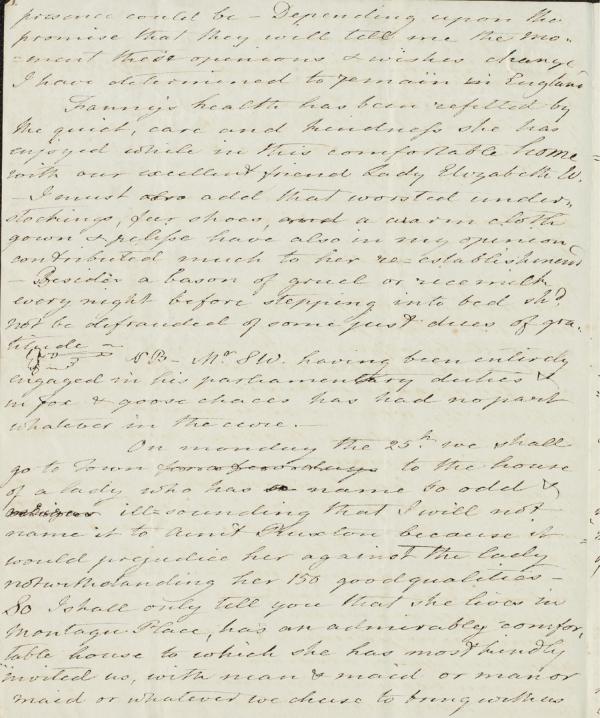 presence could be – Depending upon the
promise that they will tell me the mo-
-ment their opinions & wishes change
I have determined to remain in England
Fanny's health has been refitted by
the quiet, care and kindness she has
enjoyed while in this comfortable home
with our excellent friend Lady Elizabeth W.
– I must also add that worsted under-
stockings, fur shoes, and a warm cloth
gown & pelisse have also in my opinion
contributed much to her re-establishment
– Besides a bason of gruel or rice milk
every night before stepping into bed shd.
not be defrauded of some just dues of gra-
titude –
NB – Mr S W. having been entirely
engaged in his parliamentary duties &
in fox & goose chaces has had no part
whatever in the cure. –
On monday the 25th we shall
go to Town for a few days to the house
of a lady who has a name so odd &
ill-sounding that I will not
name it to Aunt Ruxton because it
would prejudice her against the lady
notwithstanding her 150 good qualities –
So I shall only tell you that she lives in
Montagu Place, has an admirably comfor,
table house to which she has most kindly
invited us, with man & maid or man or
maid or whatever we chuse to bring with us